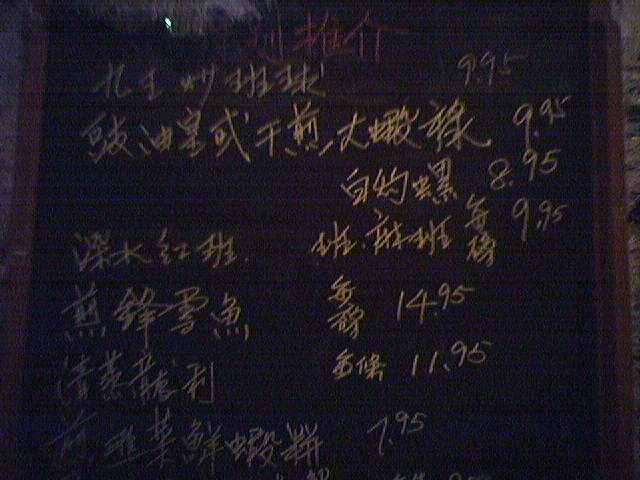 特別推介
九王炒班球 9.95
豉油皇或干煎大蝦祿 9.95
白灼螺 8.95
深水紅班. 班.麻班 每磅 9.95
煎鋒雪魚 每磅 14.95
清蒸龍利 每條 11.95
煎韮菜鮮蝦餅 7.95